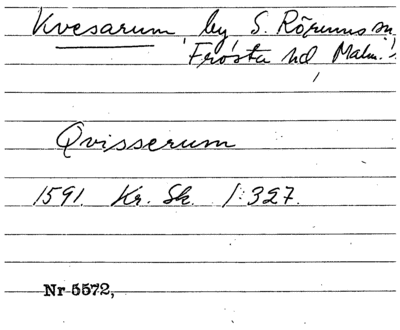 Kvesarum, by, S. Rörums sn
Frosta hd, Malm.
Qvisserum
1591. Kr. Sk. 1:327.
Nr 5572,